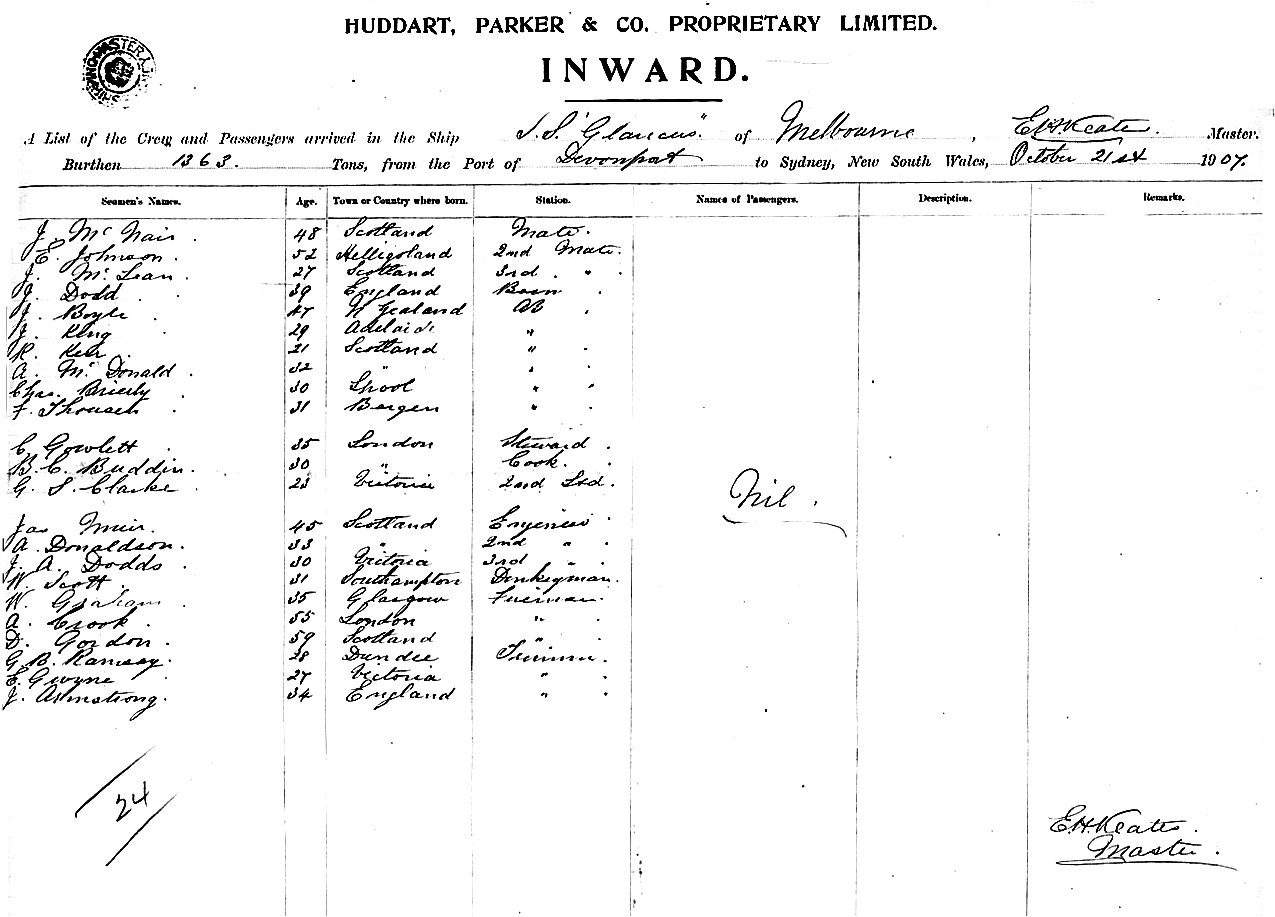 HUDDART, PARKER & CO. PROPRIETARY LIMITED.
INWARD.
A List of the Crew and Passengers arrived in the Ship S.S "Glaucus" of Melbourne, E.H. Keates. Master.
Burthen 1363. Tons, from the Port of Devonport to Sydney, New South Wales, October 21st 1907.
Seamen's Names. Age. Town or Country where born. Station. Names of Passengers. Description. Remarks.
J. McNair. 48 Scotland Mate.
E. Johnson. 52 Helligoland 2nd Mate.
J. McLean. 27 Scotland 3rd "
J. Dodd. 39 England Bosn.
J. Boyle. 47 N Zealand AB.
J. King 29 Adelaide "
R. Keir. 21 Scotland "
A. McDonald. 32 " "
Chas. Brierly 30 Lpool "
F. 31 Bergen "
C. Gowlett. 35 London Steward.
B. C. Buddin. 30 " Cook.
G. S. Clarke 23 Victoria 2nd Std.
Nil.
Jas Muir. 45 Scotland Engineer.
A. Donaldson. 33 " 2nd "
J. A. Dodds. 30 Victoria 3rd "
W. Scott. 31 Southampton Donkeyman.
W. Graham 35 Glasgow Fireman.
A. Crook. 55 London "
D. Gordon. 59 Scotland "
G. B. Ramsay. 28 Dundee Trimmer.
E. Gwyne 27 Victoria "
J. Armstrong. 34 England "
24
E.H. Keates.
Master.